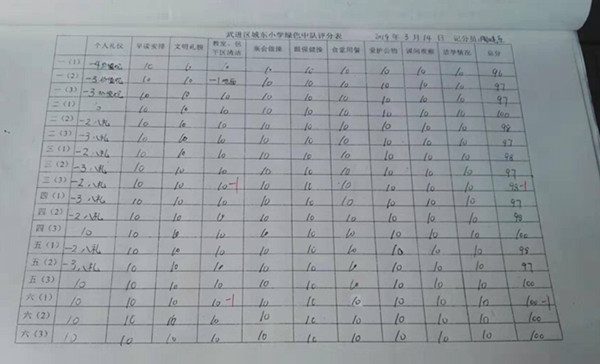 武进区城东小学绿色中队评分表 2019年3月14日 记分员
个人礼仪 早读安排 文明礼貌 教室、包干区清洁 集会做操 眼保健操 食堂用餐 爱护公物 课间观察 放学情况 总分
一（1） -4 10 10 10 10 10 10 10 10 96
一（2） -3 10 10 -1 10 10 10 10 10 10 97
一（3） -3 10 10 10 10 10 10 10 10 10 97
二（1） 10 10 10 10 10 10 10 10 10 100
二（2） -2 10 10 10 10 10 10 10 10 10 98
二（3） -3 10 10 10 10 10 10 10 10 10 97
三（1） -2 10 10 10 10 10 10 10 10 10 98
三（2） -3 10 10 10 10 10 10 10 10 10 97
三（3） -2 10 10 10 -1 10 10 10 10 10 10 98 -1
四（1） -3 10 10 10 10 10 10 10 10 10 97
四（2） -2 10 10 10 10 10 10 10 10 10 98
四（3） 10 10 10 10 10 10 10 10 10 10 100
五（1） -2 10 10 10 10 10 10 10 10 10 98
五（2） -3 10 10 10 10 10 10 10 10 10 97
五（3） 10 10 10 10 10 10 10 10 10 10 100
六（1） 10 10 10 10 -1 10 10 10 10 10 10 100 -1
六（2） 10 10 10 10 10 10 10 10 10 10 100
六（3） 10 10 10 10 10 10 10 10 10 10 100